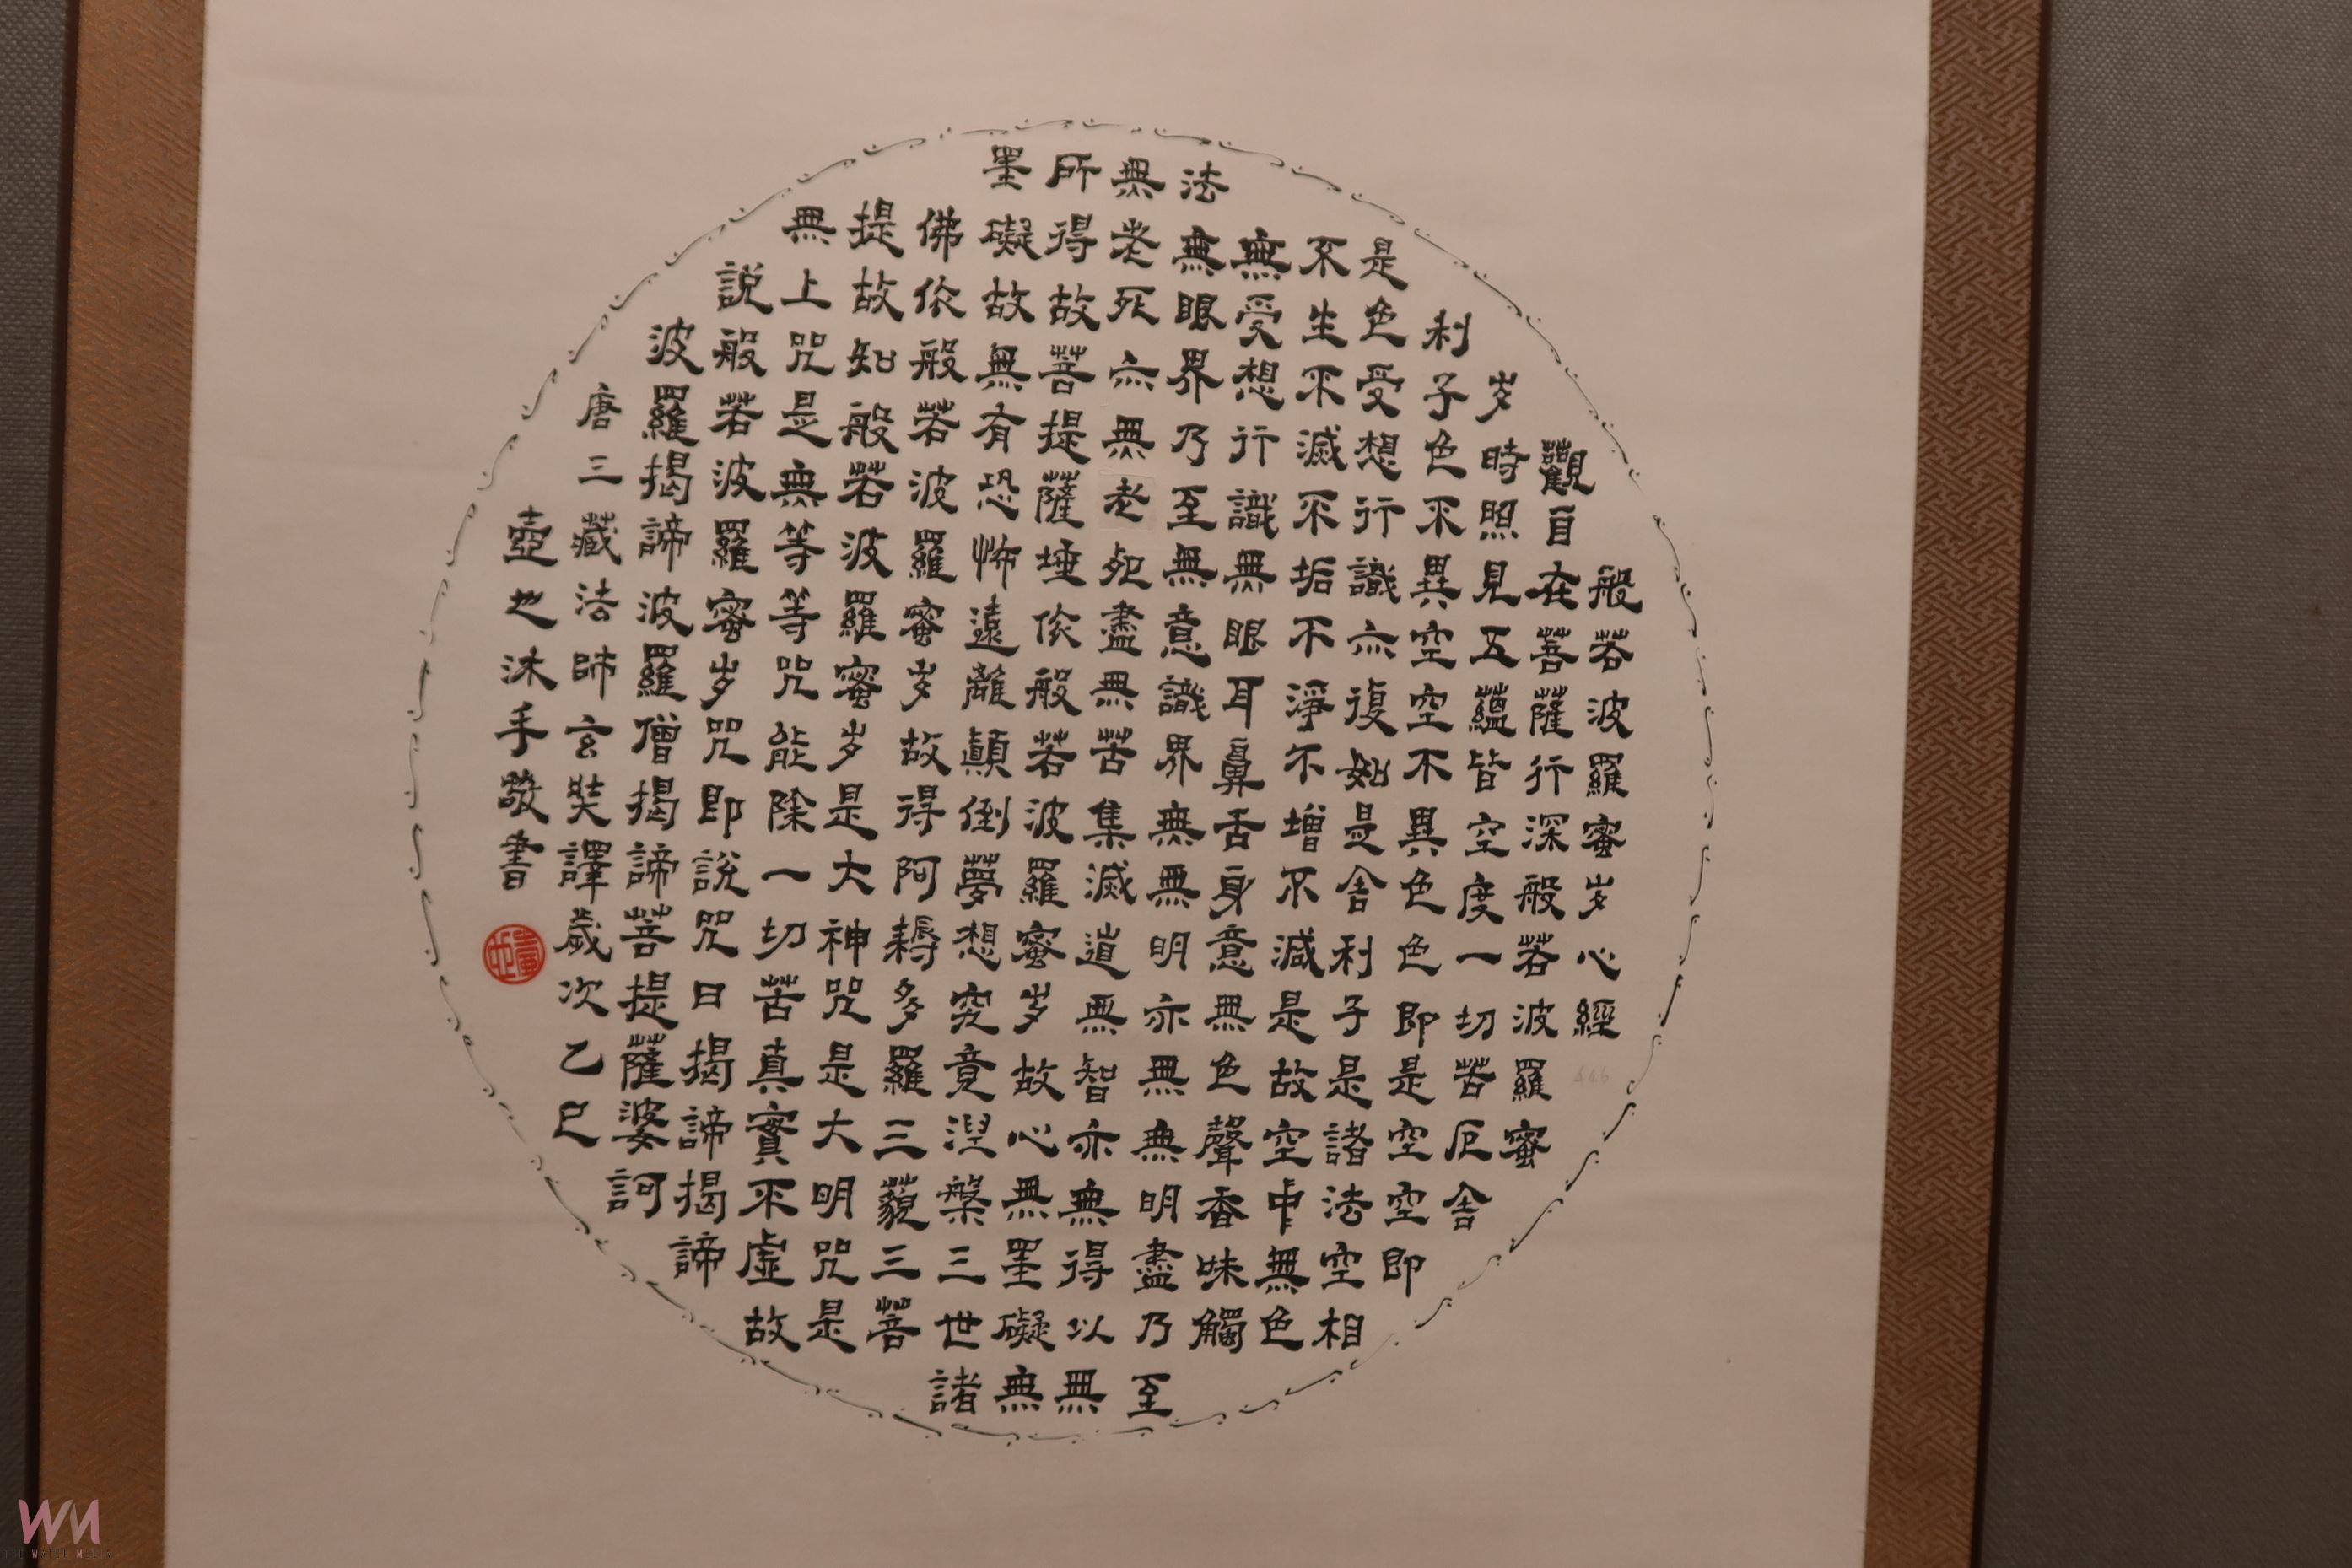 般若波羅蜜多心經
觀自在菩薩行深般若波羅蜜
多時照見五蘊皆空度一切苦厄舍
利子色不異空空不異色色即是空空即
是色受想行識亦復如是舍利子是諸法空相
不生不滅不垢不淨不增不減是故空中無色
無受想行識無眼耳鼻舌身意無色聲香味觸
法無眼界乃至無意識界無無明亦無無明盡乃至
無老死亦無老死盡無苦集滅道無智亦無得以無
所得故菩提薩埵依般若波羅蜜多故心無罣礙無
罣礙故無有恐怖遠離顛倒夢想究竟涅槃三世諸
佛依般若波羅蜜多故得阿耨多羅三藐三菩
提故知般若波羅蜜多是大神咒是大明咒是
無上咒是無等等咒能除一切苦真實不虛故
說般若波羅蜜多咒即說咒曰揭諦揭諦
波羅揭諦波羅僧揭諦菩提薩婆訶
唐三藏法師玄奘譯歲次乙巳
壺也沐手敬書
WM